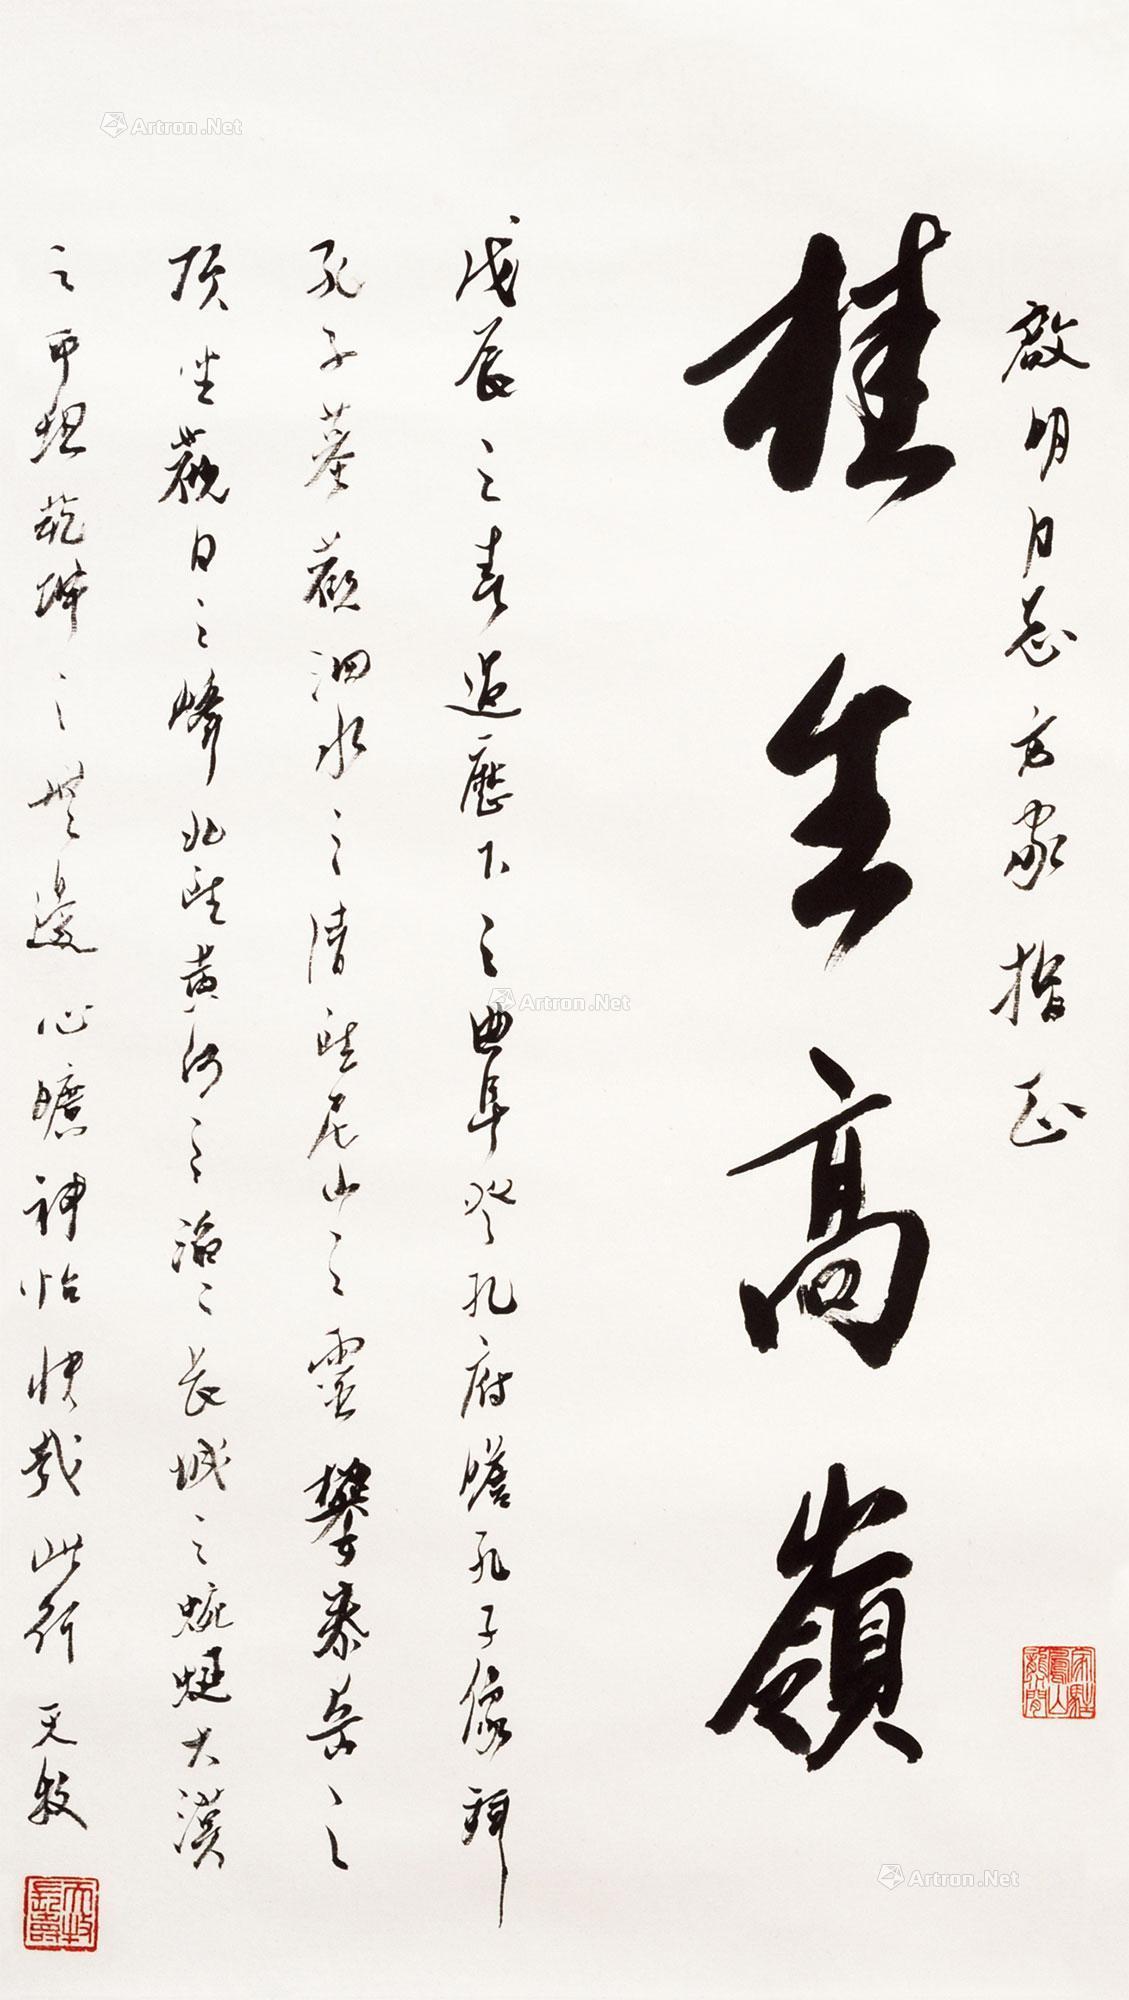 啟明同志方家指正
桂生高嶺
戊辰之春遊歷下之曲阜登孔府瞻孔子像拜
孔子墓觀泗水之清望尼山之靈攀泰岳之
頂坐觀日之峰北望黃河之滔々長城之蜿蜒大漠
之平坦乾坤之無邊心曠神怡快哉此行 天牧
Artron.Net
Artron.Net
Artron.Net